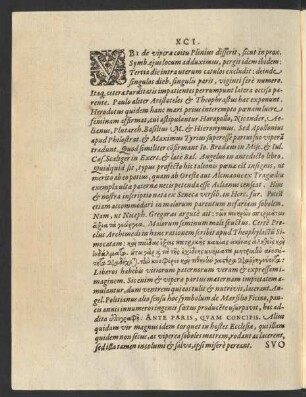 XCI.
VBI de vipera coitu Plinius disserit, sicut in prox.
Symb. ejus locum adduximus, pergit idem ibidem:
Tertia die intra uterum catulos excludit: deinde
singulos dieb. singulis parit, viginti ferè numero.
Itaq; cetera tarditatis impatientes perrumpunt latera occisa pa-
rente. Paulò aliter Aristoteles & Theophrastus hac exponunt.
Herodotus quidem hanc mari prius interemptam luere
feminam affirmat, cui astipulantur Horapollo, Nicander, Ae-
lianus, Plutarch. Basilius C M. & Hieronymus. Sed Apollonius
apud Philostrat. & Maximus Tyrius superesse partui suo viperã
tradunt. Quod similiter cōfirmant Io. Brodæus in Misc. & Iul.
Caes. Scaliger in Exerc. & late Bal. Angelius in antedicto libro.
Quidquid sit, typus profectò hic talionis pœnæ est insignis, ut
meritò ab eo partus, quam ab Oreste aut Alcmaeone Tragœdis
exempla ulta paterna necis petenda esse Aelianus censeat. Hinc
& nostra inscriptio nata ex Seneca verssb. in Herc. fur. Potest
etiam accommodari in malorum parentum nefariam sobolem.
Nam, ut Niceph. Gregoras argutè ait:
Malorum seminum mali fructus. Certè Pro-
clus Archimedis in hanc rationem scribit apud Theophylactū Si-
mocatam:
Liberos habebis vitiorum paternorum vivas & expressas i-
magines. Sicenim & vipera parentis natura impietatem a-
mulantur, dum ventrem qui sustulit & nutrivit, lacerant. An-
gel. Politianus alio sensu hoc symbolum de Marsilio Ficino, pau-
cis annis innumeros ingenii fœtus producēte usurpavit, hac ad-
dita ἐπιγραφῇ: ANTE PARIS, QVAM CONCIPIS. Alius
quidam vir magnus idem torquet in hostes Ecclesiæ, qui illam
quidem non secus, ac vipera sobolesq; matrem, rodunt ac lacerant,
sed illa tamen incolumi & salva, ipsi miserè pereunt. SVO